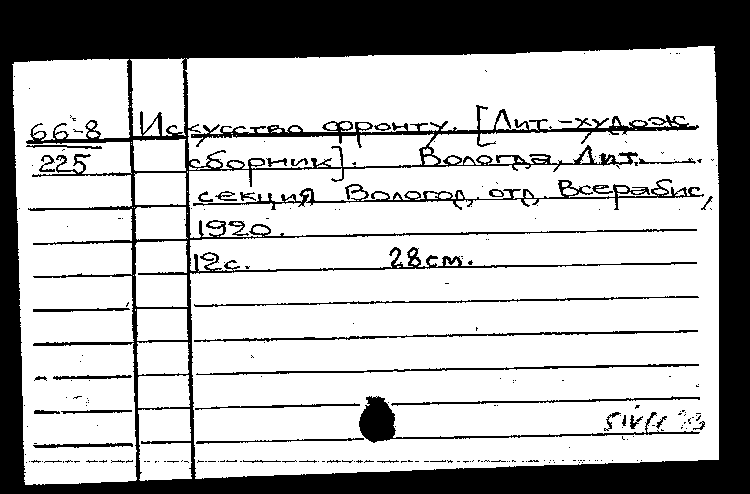 66-8 Искусство фронту. [Лит.-худож
225 сборник]. Вологда, Лит.
секция Вологод, отд, Всерабис,
1920.
12с. 28см.